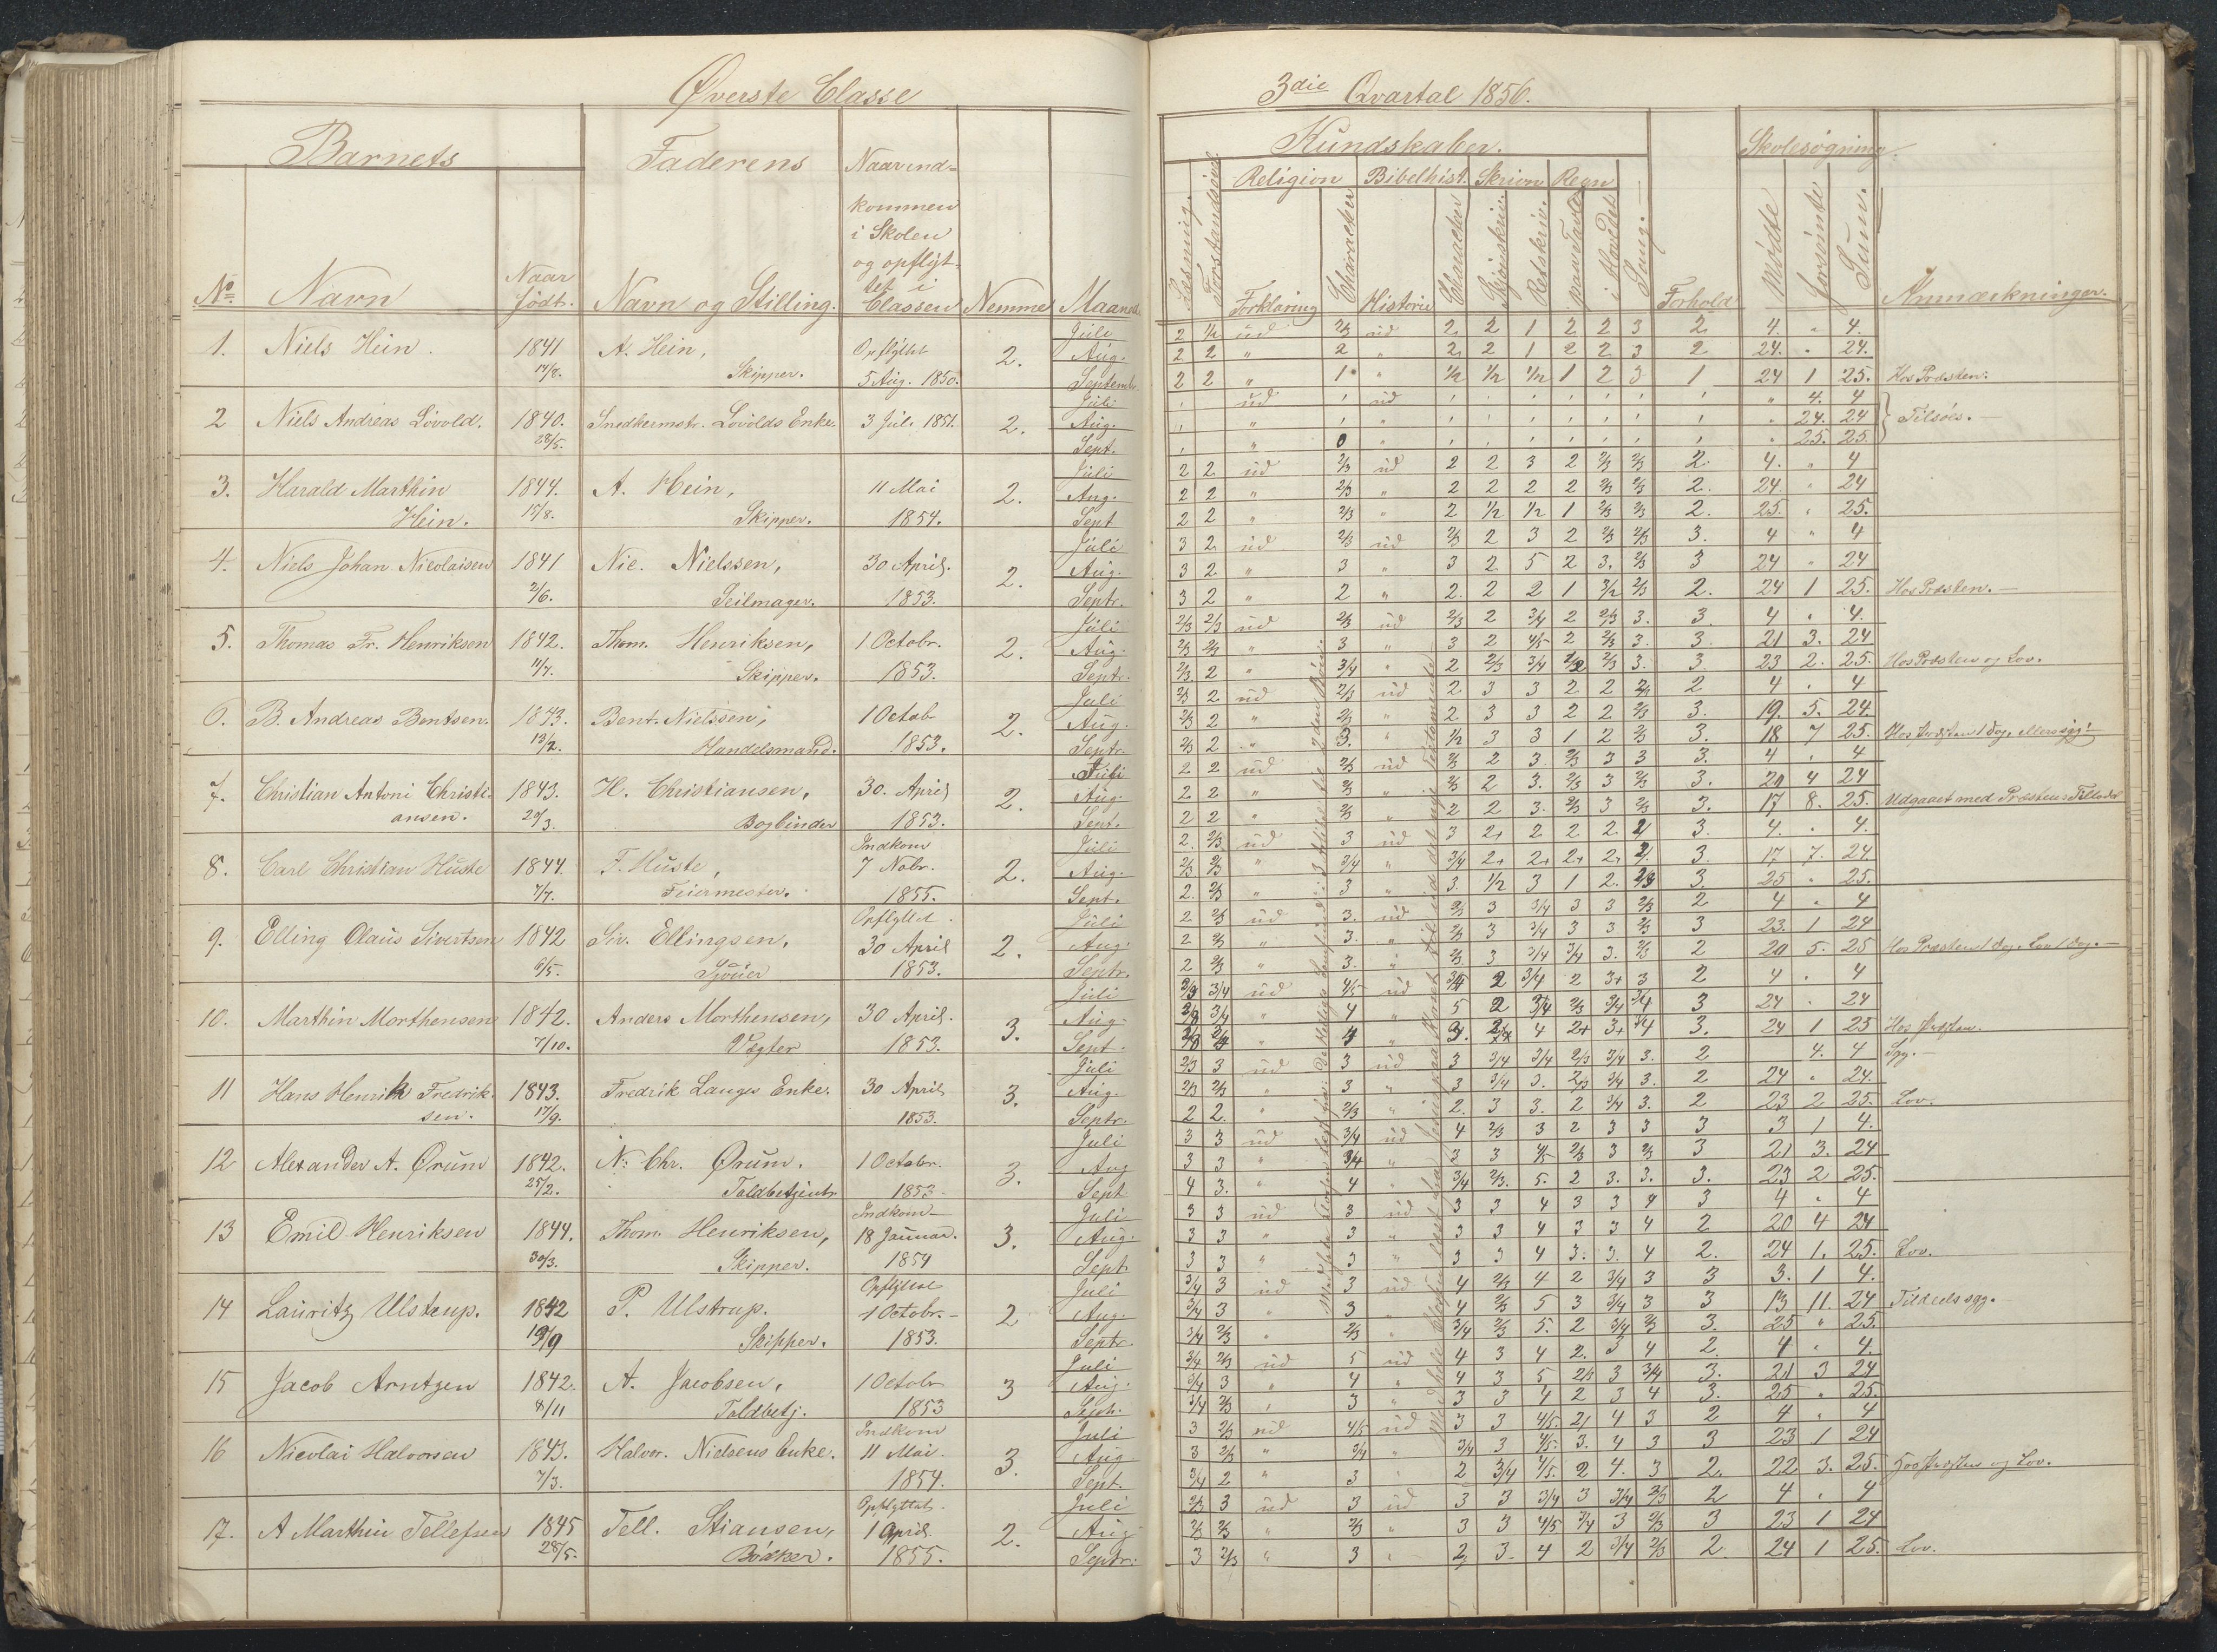 Øverste Classe
Barnets
Faderens
Naar ind-
kommen
i Skolen
og opflyt-
tet i
Classen
No
Navn
Naar
født.
Navn og Stilling.
Nemme
Maaned.
1. Niels Hein. 1841 A. Hein, Opflyttet 2. Juli
14/8. Skipper. 5 Aug. 1850. Aug.
Septembr.
2 Niels Andreas Lövold. 1840. Snedkermstr. Lövolds Enke. 3 Juli 1851. 2. Juli
28/5. Aug.
Sept.
3. Harald Marthin 1844. A. Hein, 11 Mai 2. Juli
Hein. 15/8. Skipper. 1854. Aug.
Sept
4. Niels Johan Nicolaisen 1841 Nic. Nielssen, 30 April. 2. Juli
2/6. Seilmager. 1853. Aug.
Septr.
5. Thomas Fr. Henriksen 1842. Thom. Henriksen, 1 Octobr. 2. Juli
11/7. Skipper. 1853. Aug.
Septr.
6. B. Andreas Bentsen. 1843. Bent. Nielssen, 1 Octob 2. Juli
13/2. Handelsmand. 1853. Aug.
Septr.
7. Christian Antoni Christi- 1843. H. Christiansen, 30. April 2. Juli
ansen. 20/3. Bogbinder 1853. Aug.
Sept.
8. Carl Christian Huste 1844. F. Huste, Indkom 2. Juli
7/7. Feiermester. 7 Nobr. Aug.
1855. Sept.
9. Elling Claus Sivertsen 1842 Siv. Ellingsen, Opflyttet 2. Juli
6/5. Sjöuer 30 April Aug.
1853. Septr.
10. Marthin Morthensen 1842. Anders Morthensen, 30 April. 3. Juli
7/10. Vægter 1853. Aug.
Sept.
11 Hans Henrik Fredrik- 1843. Fredrik Langes Enke. 30 April 3. Juli
sen. 17/9. 1853. Aug.
Septr.
12 Alexander A. Örum 1842. N. Chr. Örum. 1 Octobr. 3. Juli
25/2. Toldbetjent. 1853. Aug
Sept
13 Emil Henriksen 1844. Thom. Henriksen, Indkom 3. Juli
30/3. Skipper. 18 Januar. Aug.
1854 Sept.
14 Lauritz Ulstrup. 1842 P. Ulstrup. Opflyttet 2 Juli
19/9 Skipper. 1 Octobr. Aug.
1853. Septr.
15 Jacob Arntzen 1842. A. Jacobsen, 1 Octobr 3 Juli
8/11 Toldbetj. 1853 Aug.
Septr.
16 Nicolai Halvorsen 1843. Halvor. Nielsens Enke. Indkom 3. Juli
7/3. 11 Mai. Aug
1854. Sept.
17. A Marthin Tellefsen 1845 Tell. Stiansen, Opflyttet 2. Juli
28/5. Bödker. 1 April Aug
1855. Septr.
3die Qvartal 1856.
Kundskaber.
Skolesøgning.
Religion Bibelhist. Skrivn Regn
Læsning.
Forklaring
Charachter
Historie
Charachter
Retskriv.
Sang.
Forhold
Mødte
Forsømte
Sum.
Anmærkninger.
2 1/2 ud 2/3 ud 2 2 1 2 2 3 2 4. " 4.
2 2 " 2 " 2 2 1 2 2 3 2 24. " 24.
2 2 " 1 " 1/2 1/2 1/2 1 2 3 1 24 1 25. Hos Præsten.
ud ud " 4. 4
" 24. 24 Tilsöes.
0 " 25. 25
2 2 ud 2/3 ud 2 2 3 2 2/3 2/3 2. 4. " 4
2 2 " 2/3 " 2 2 2 2 2/3 2/3 2. 24. " 24
2 2 " 2/3 " 2 1/2 1/2 1 2/3 2/3 2. 25. " 25.
3 2 ud 2/3 ud 2/3 2 3 2 2/3 2/3 3. 4 " 4
3 2 " 3 " 3 2 5 2 3. 2/3 3 24 " 24
3 2 " 2 " 2. 2 2 1 3/2 2/3 2. 24 1 25. Hos Præsten.
2/3 2/3 ud 2/3 ud 2/3 2 3/4 2 2/3 3. 3. 4 " 4.
2/3 2/3 " 3 " 3 2 4/5 2 2/3 3. 3. 21 3. 24
2/3 2 " 3/4 " 2 2/3 3/4 2/3 3. 3. 23 2. 25. Hos Præsten og Lov.
2/3 2 ud 2/3 ud 2 3 3 2 2 2/3 2 4 " 4
2/3 2 " 2/3 " 2 3 3 2 2 2/3 3. 19. 5. 24.
2/3 2 " 3. " 1/2 3 3 1 2 2/3 3. 18 7 25. Hos Præsten 1 Dag.
2 2 ud 2/3 ud 2/3 2 3 2/3 3 3 3. 4 " 4
2 2 " 2/3 " 2/3 2 3. 2/3 3 2/3 3. 20 4 24
2 2 " 2/3 " 2 2 3. 2/3 3 2/3 3. 17 8. 25. Udgaaet med Præstens Tillad
2. 2/3 ud 3 ud 3 2+ 2 2 2. 3. 4. " 4.
2/3 2/3 " 3/4 " 3/4 2+ 2+ 2+ 2. 3. 17 7. 24.
2. 2/3 " 3 " 3. 1/2 3 1 2. 2/3 3. 25 " 25.
2 2/3 ud 3. ud 2/3 3 3/4 3 3 2/3 2 4 " 4
2 2/3 " 3. " 2/3 3 3/4 3 3 2/3 3 23. 1 24
2 2/3 " 3. " 2/3 3 3/4 3/4 3. 2/3 2 20 5. 25 Hos Præsten 1 Dag. Lov 1 Dag.
3/4 ud 4/5 ud 2 3/4 2 3+ 3 2 4 " 4
3/4 " 4 " 5 2 3/4 2/3 3/4 3/4 3 24 " 24
" 4 " 3. 4 2+ 3+ 3/4 3. 24 1 25 Hos Præsten.
2/3 3 ud 3 ud 3 3/4 3/4 2/3 3/4 3. 2 4. 4 Syg.
2/3 2/3 " 3 " 3 3/4 3. 2/3 3/4 3. 2 24 " 24.
2 2. " 2/3 " 2. 3 3. 2 3/4 3. 2 23 2 25. Lov.
3 3 ud 3/4 ud 4 2/3 3 2 3 3 3 3 1 4.
3 3 " 3/4 " 3 3 4/5 2/3 3 2/3 3 21 3. 24
4 3. " 4 " 3/4 2/3. 5. 2 3. 3. 3. 23 2 25.
3 3 ud 3 ud 3 3 4 3 3 4 3 4 " 4
3 3 " 3 " 3 3 4 3 3 4 2 20 4 24
3 3 " 3 " 3 3 4 3. 3. 4 2. 24 1. 25. Lov.
3/4 3 ud 3 ud 4 2/3 4 2 3/4 3 3 3. 1 4.
3/4 3 " 3 " 4 2/3 5 3 3/4 3 3 13 11. 24 Tildeels syg.
3/4 2/3 " 2/3 " 3/4 2/3 5. 2 3/4 2/3 3. 25 " 25.
3/4 2/3 ud 5 ud 4 3 4 2. 3 4 2. 4 " 4.
3/4 3 " 4 " 4 3 5 2/3 3 3/4 3. 21 3 24
3/4 2/3 " 3 " 3 3 4 2 3 4 3. 25 " 25.
3 2/3 ud 4/5 ud 3 3 4/5. 4 3 2 4 " 4
3 2/3 " 3/4 " 3/4 3 4/5. 3. 4 3 3 23 1 24
3/4 2 " 3 " 2 3/4 4/5. 2 4. 3 2. 22 3. 25. Hos Præsten og Lov.
2/3 3 ud 3 ud 3 3 3/4 3 3/4 2/3 2 4 " 4
2/3 2/3 " 2/3 " 3 3 4/5 3/4 3 2/3 3 23 1 24
3 2/3 " 3 " 2 3. 4 2 3/4 2/3 2. 24 1 25. Lov.